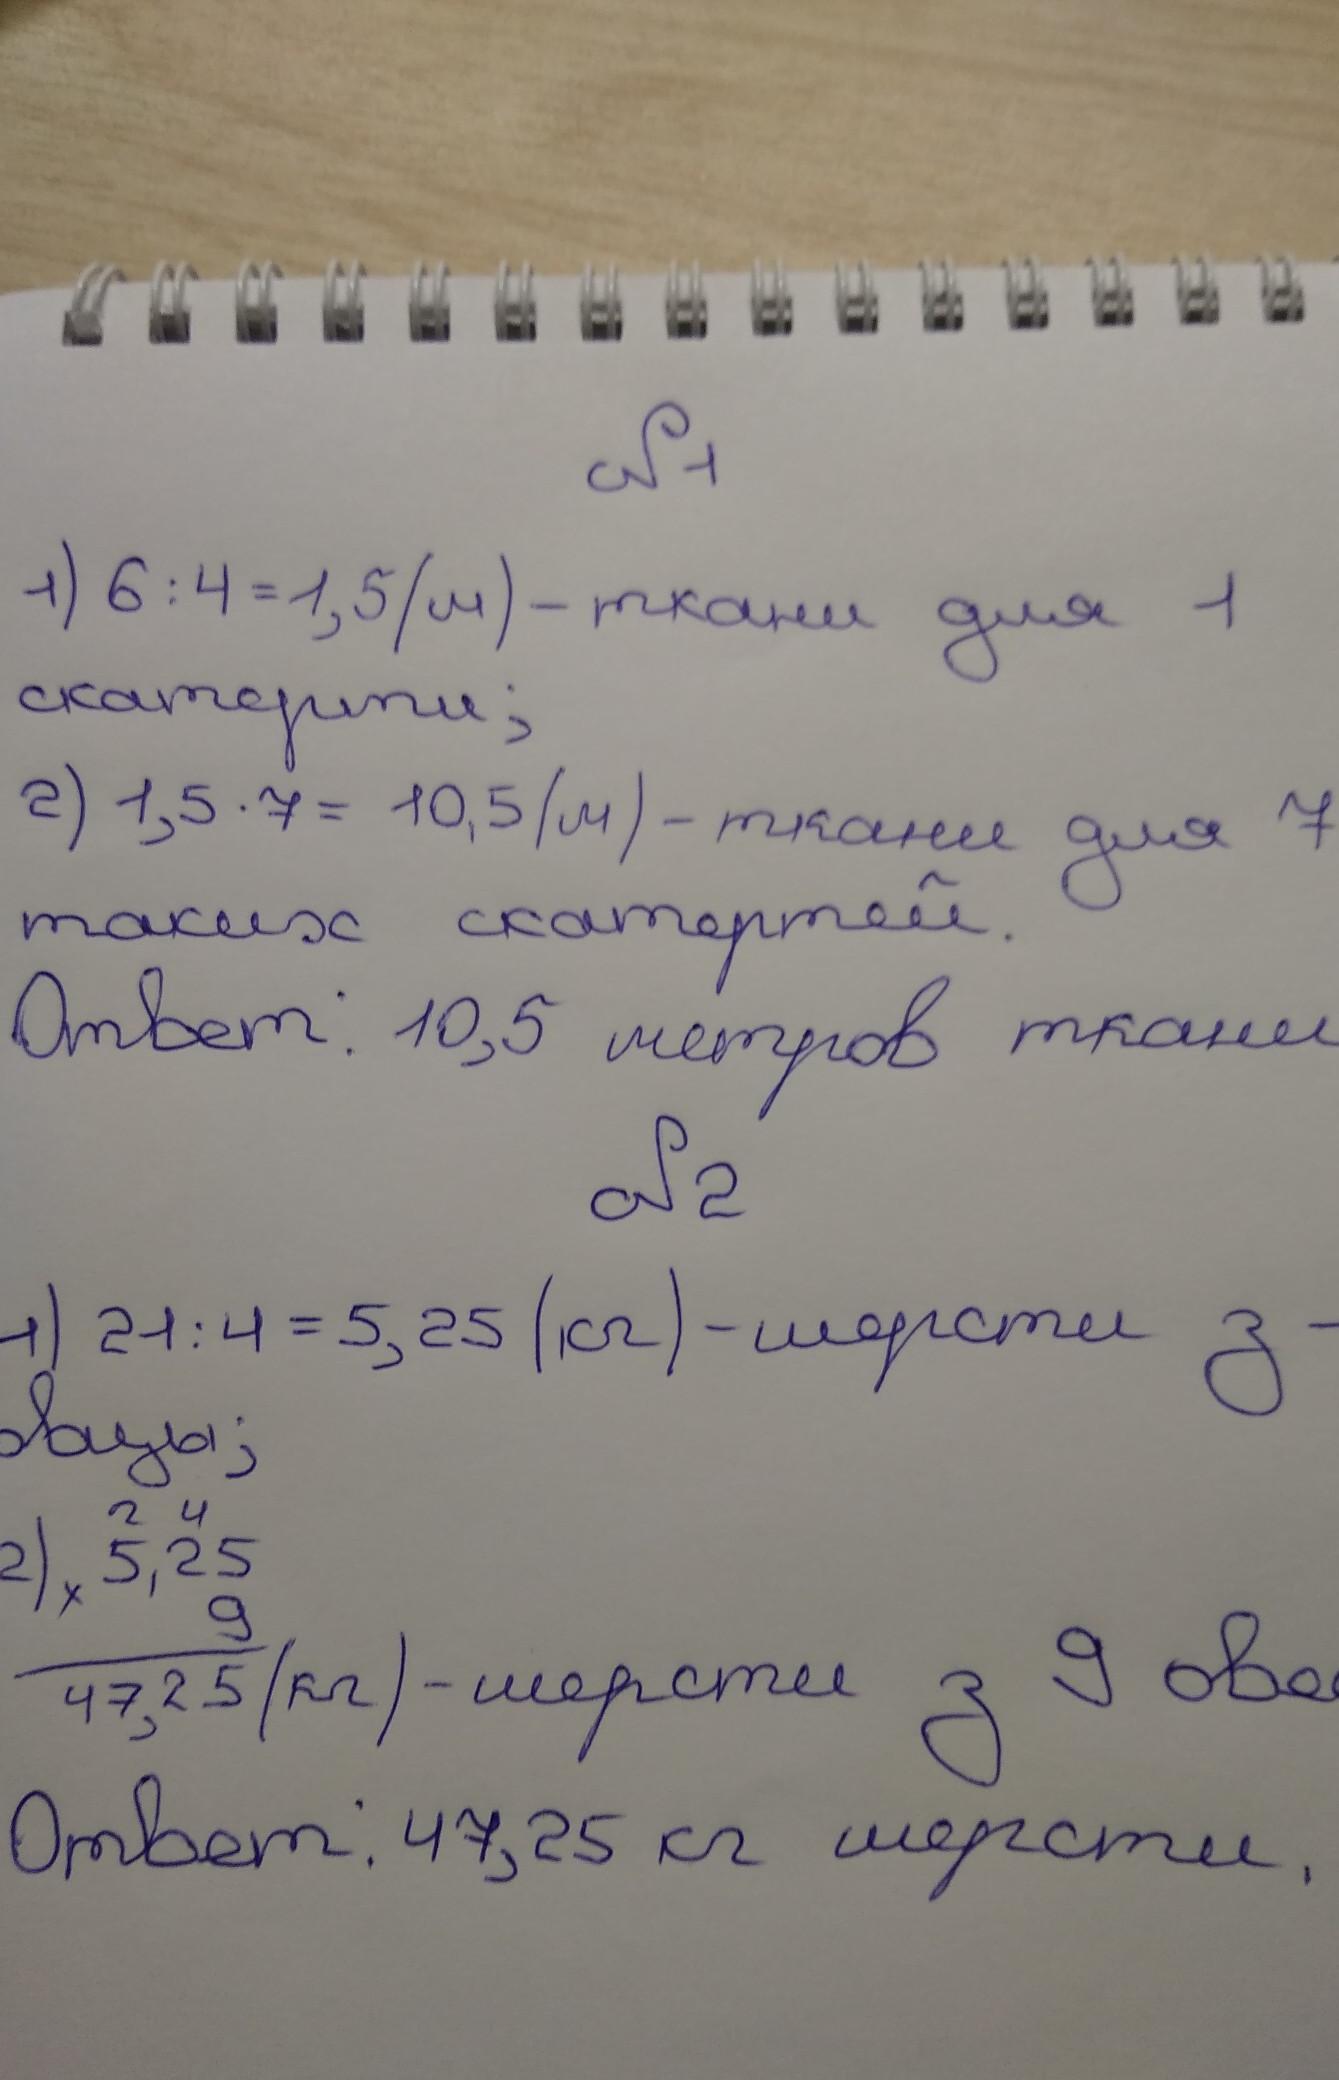 №1
1) 6:4=1,5(м)-ткани для 1
скатерти;
2) 1,5·7= 10,5(м)-ткани для 7
таких скатертей.
Ответ: 10,5 метров ткани
№2
1) 21:4=5,25(кг)-шерсти з
овцы;
2 4
2) x 5,25
9
47,25(кг)-шерсти з 9 ове
Ответ: 47,25 кг шерсти.